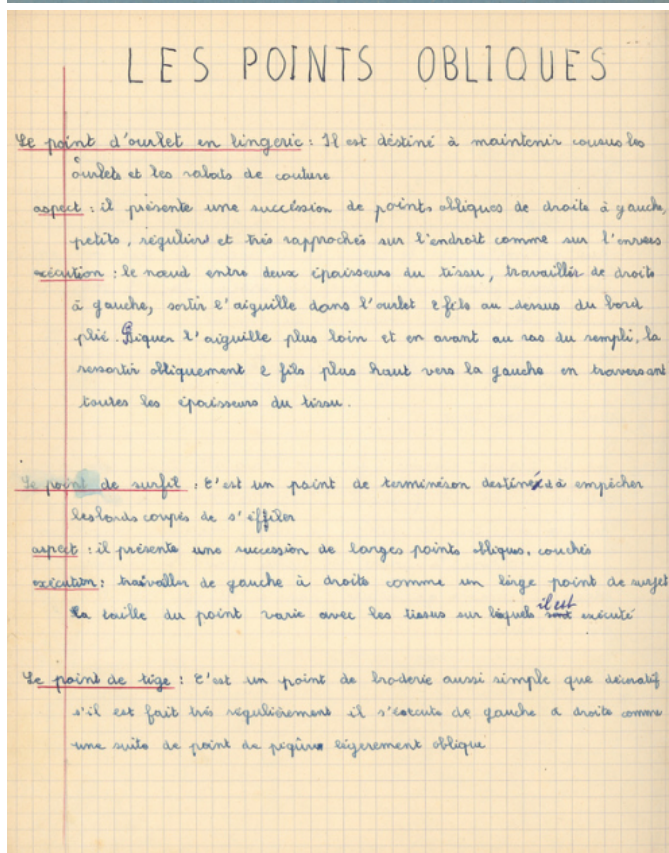 LES POINTS OBLIQUES
Le point d'ourlet en lingerie : Il est déstiné à maintenir cousus les
ourlets et les rabats de couture
aspect : il présente une succéssion de points obliques de droite à gauche,
petits, réguliers et très rapprochés sur l'endroit comme sur l'envers
exécution : le nœud entre deux épaisseurs du tissu, travailler de droite
à gauche, sortir l'aiguille dans l'ourlet 2 fils au dessus du bord
plié. Piquer l'aiguille plus loin et en avant au ras du rempli, la
ressortir obliquement 2 fils plus haut vers la gauche en traversant
toutes les épaisseurs du tissu.
Le point de surfil : C'est un point de terminéson destiné à empêcher
les bords coupés de s'éffiler
aspect : il présente une succession de larges points obliques, couchés
exécution : travailler de gauche à droite comme un large point de surjet
La taille du point varie avec les tissus sur léquels il est exécuté
Le point de tige : C'est un point de broderie aussi simple que décoratif
s'il est fait très régulièrement il s'éxecute de gauche a droite comme
une suite de point de piqûre légerement oblique